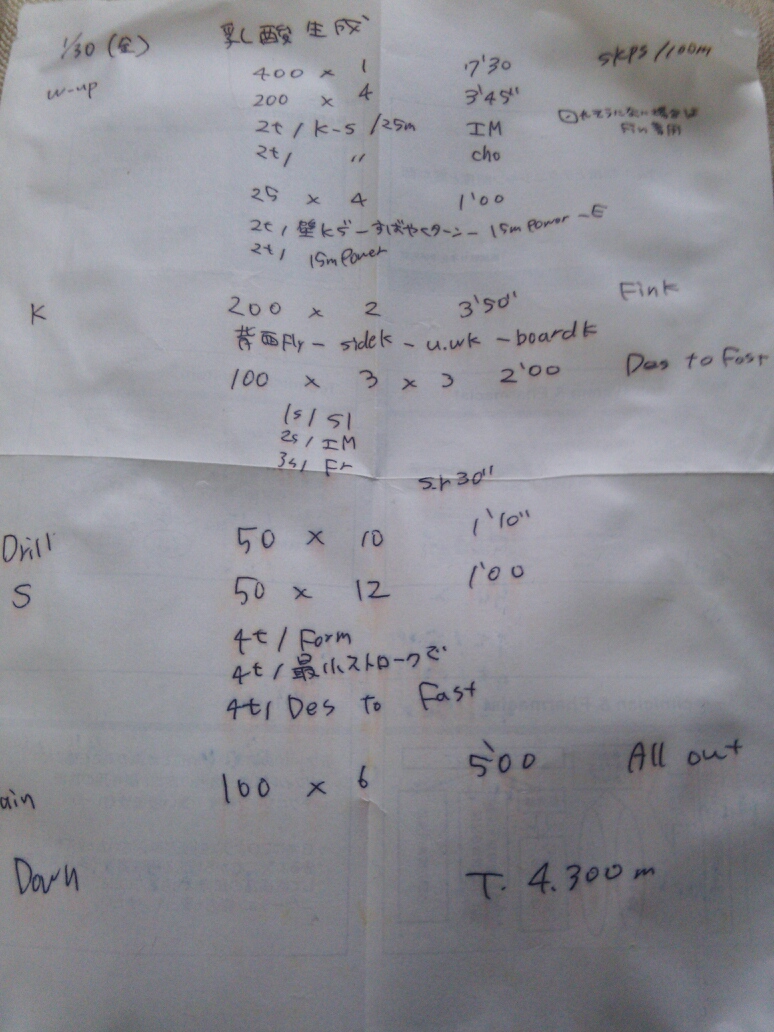 1/30(金) 乳酸生成
400 × 1 7'30 5kps/100m
w-up 200 × 4 3'45"
2t/ K-S /25m IM
Fin 専用
2t/ 〃 cho
25 × 4 1'00
2t/ 壁kで-すばやくターン-15mPower-E
2t/ 15mPower
K 200 × 2 3'50" Fink
背面Fly - sidek - u.wk - boardk
100 × 3 × 3 2'00 Des to Fast
1s/ S1
2s/ IM
3s/ Fr
S.r 30"
Drill 50 × 10 1'10"
S 50 × 12 1'00
4t/ Form
4t/ 最小ストロークで
4t/ Des to Fast
ain 100 × 6 5'00 All out
Down T. 4.300m